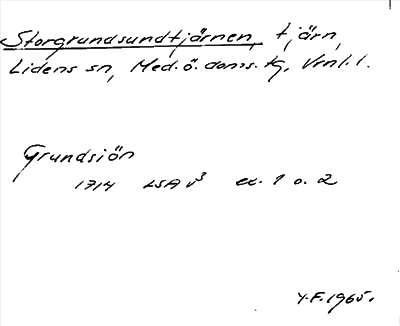 Storgrundsundtjärnen, tjärn,
Lidens sn, Med.ö. doms. tg, Vrnl. l.
Grundsiön
1714 LSA V³ ex. 1 o. 2
Y.F. 1965.